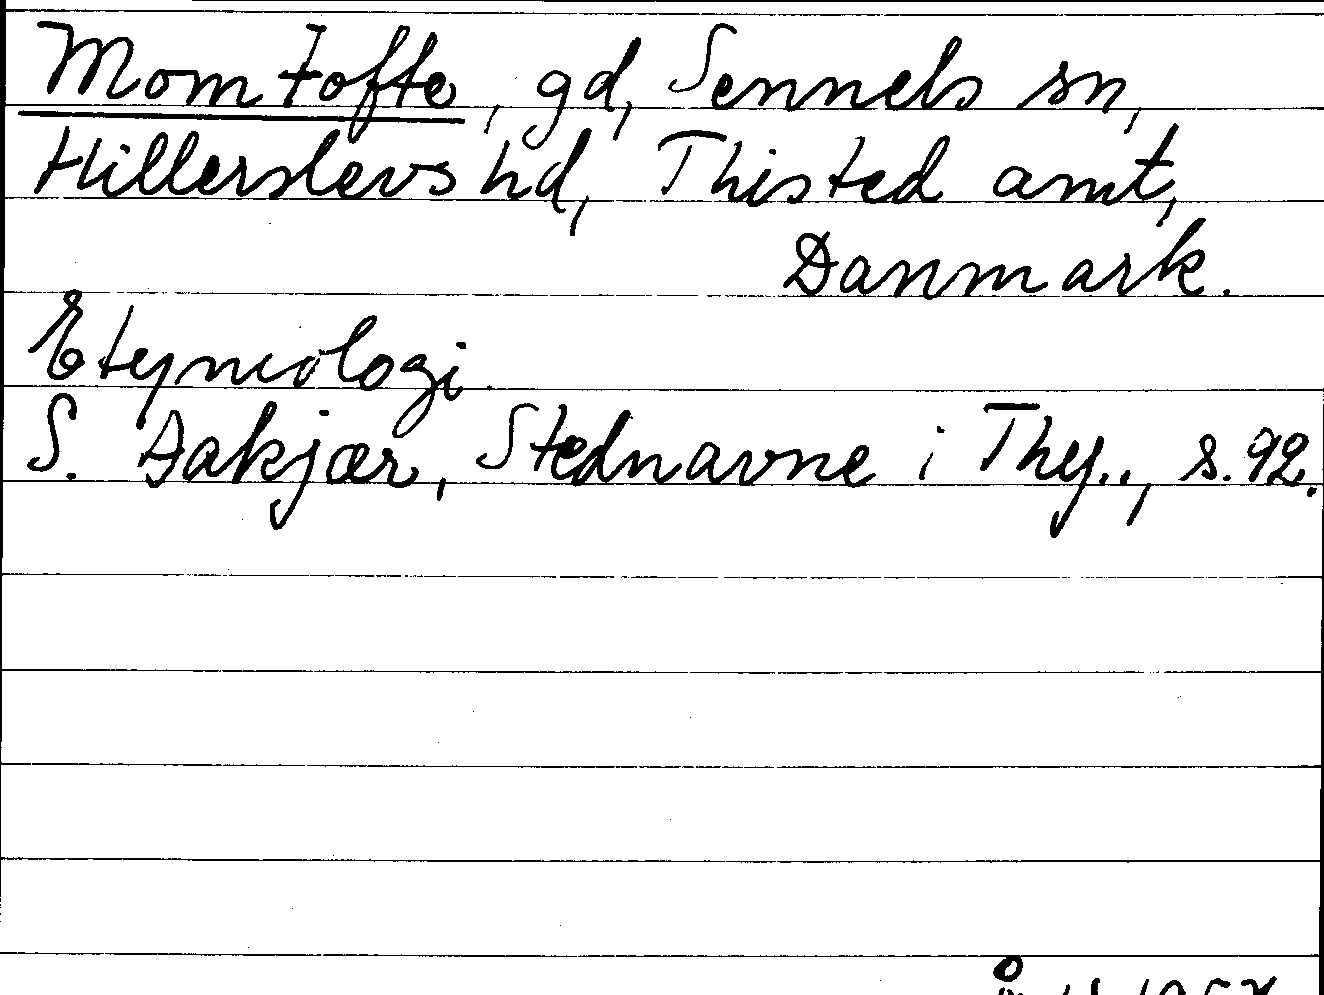 Momtofte, gd, Sennels sn,
Hillerslevs hd, Thisted amt,
Danmark.
Etymologi.
S. Aakjær, Stednavne i Thy.., s. 92.